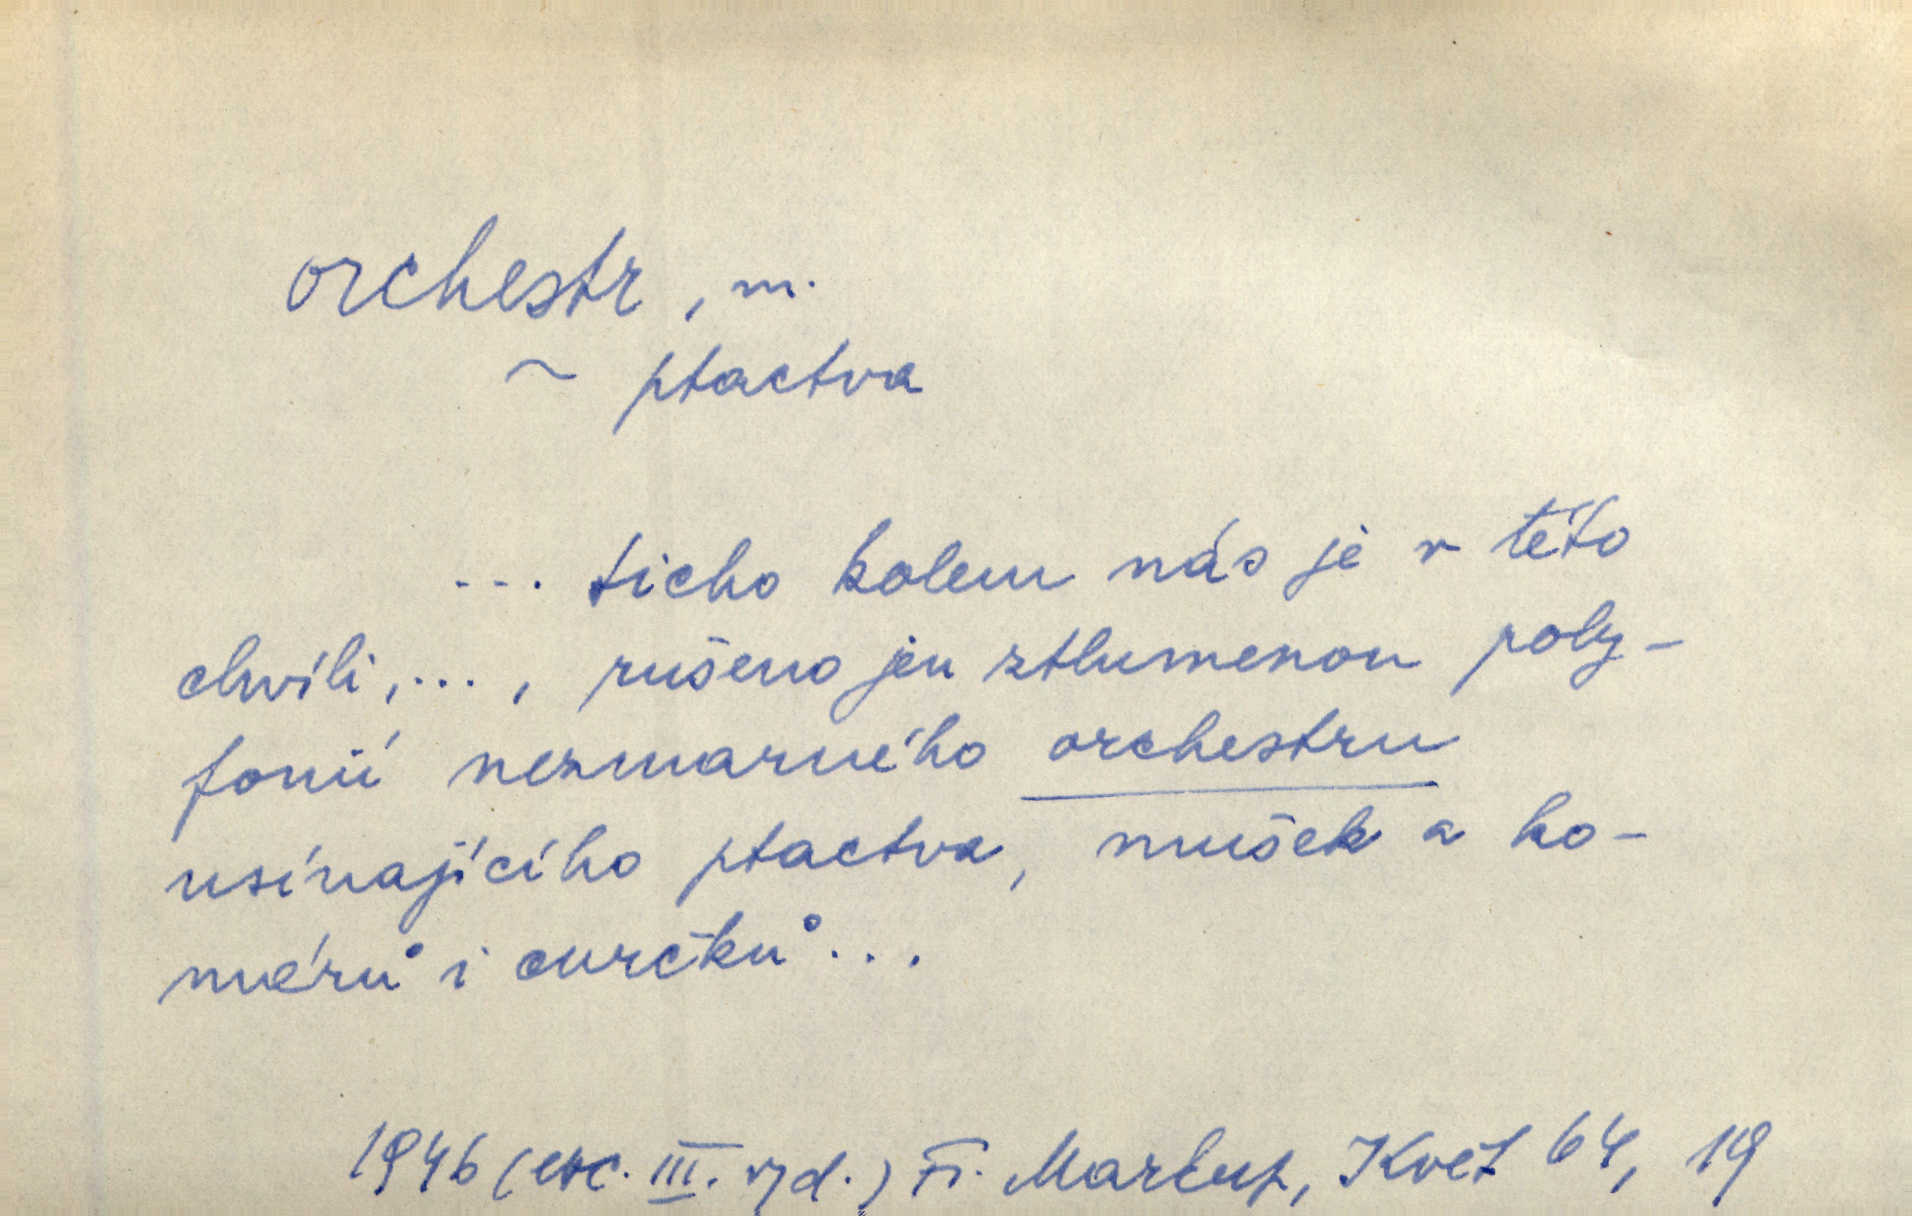 orchestr, m.
~ ptactva
... ticho kolem nás je v této
chvíli,..., rušeno jen ztlumenou poly-
fonií nezmarného orchestru
usínajícího ptactva, mušek a ko-
márů i cvrčků...
1946 (exc. III. vyd.) Fr. Markup, Květ 64, 19